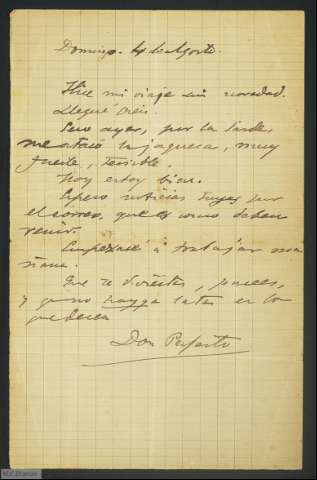 Domingo. 4 de Agosto.
Hice mi viaje sin novedad.
Llegué bien.
Pero ayer, por la tarde,
me atacó la jaqueca, muy
fuerte, terrible.
Hoy estoy bien.
Espero noticias tuyas por
el correo, que es como deben
venir.
Empezaré á trabajar ma
ñana.
Que te diviertas, paseos,
y que no haya latas es lo
que desea
Don Perfecto